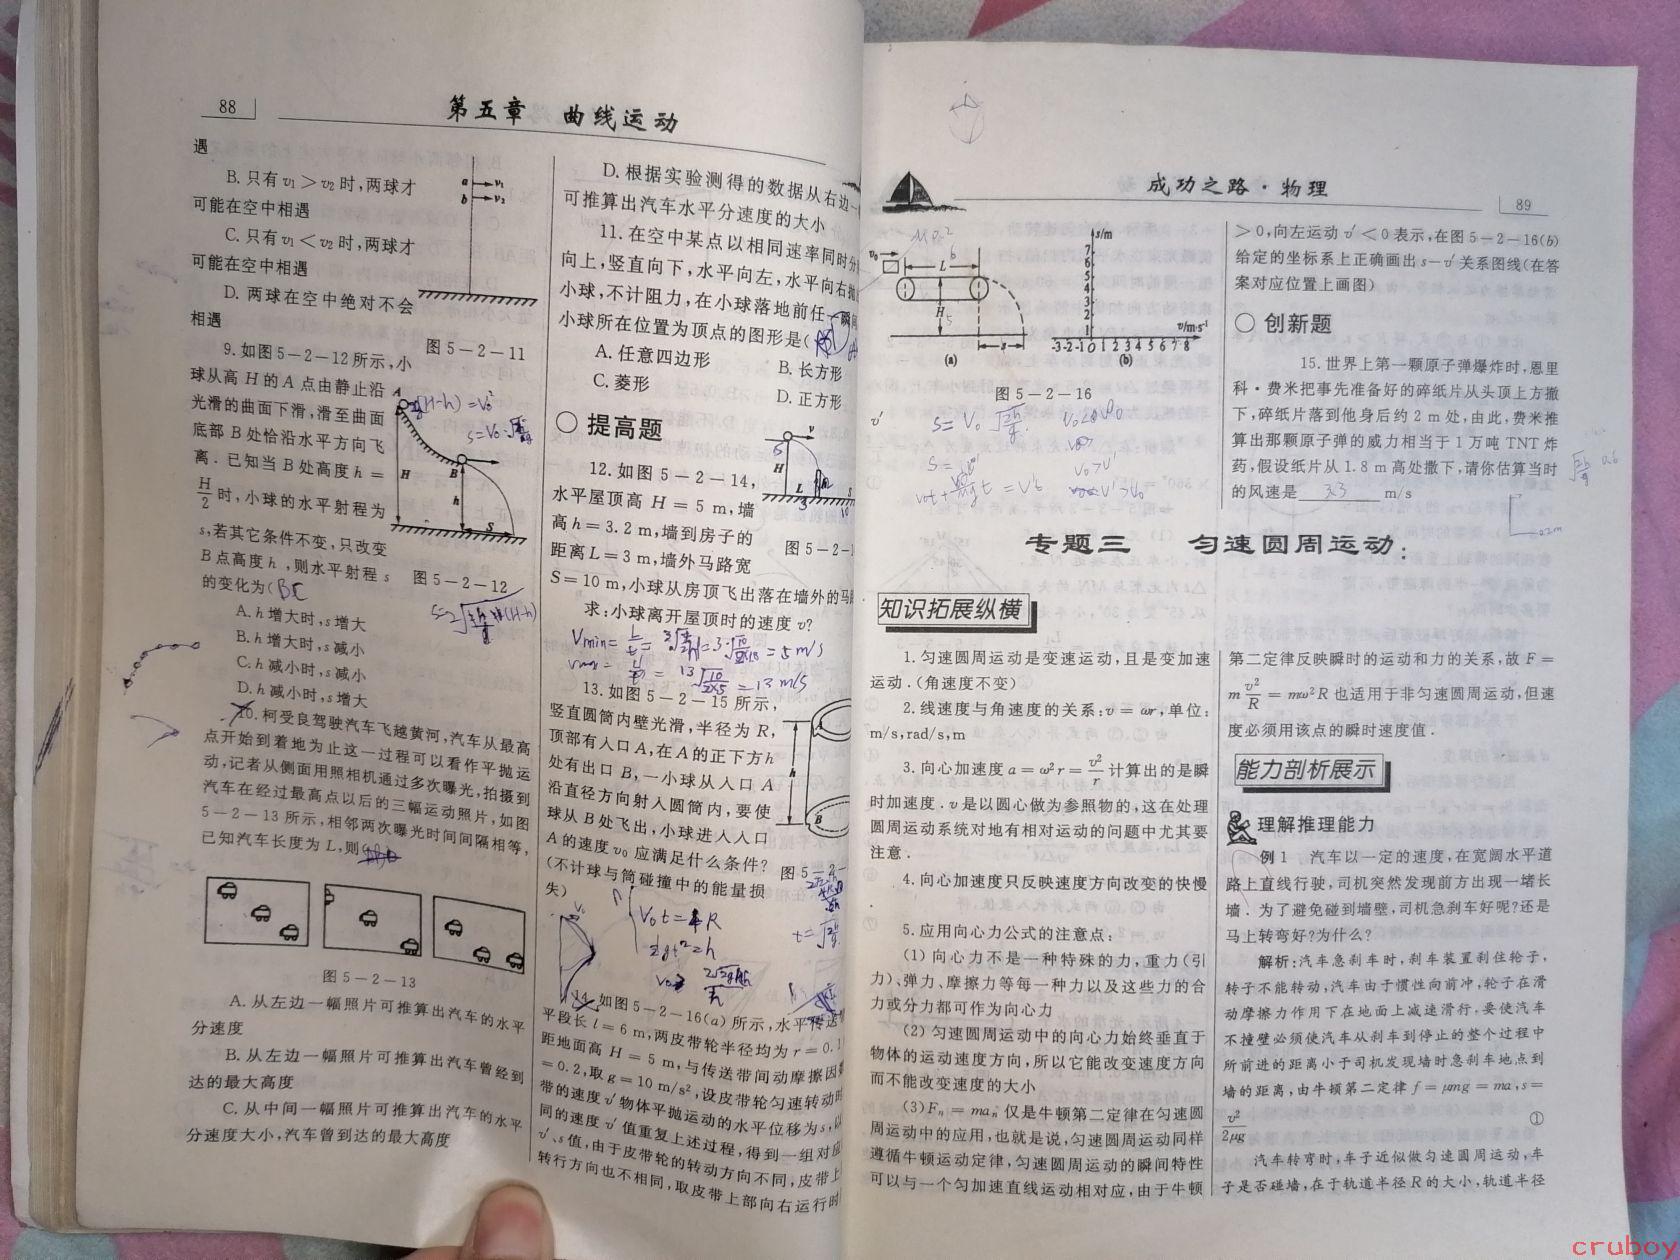 88
第五章 曲线运动
遇
B.只有v₁>v₂时,两球才
可能在空中相遇
C.只有v₁<v₂时,两球才
可能在空中相遇
D.两球在空中绝对不会
相遇
a v₁
b v₂
图5-2-11
9.如图5-2-12所示,小
球从高H的A点由静止沿
光滑的曲面下滑,滑至曲面
底部B处恰沿水平方向飞
离.已知当B处高度h=
H/2时,小球的水平射程为
s,若其它条件不变,只改变
B点高度h,则水平射程s
的变化为(BC
A
H
B
h
S
图5-2-12
A.h增大时,s增大
B.h增大时,s减小
C.h减小时,s减小
D.h减小时,s增大
10.柯受良驾驶汽车飞越黄河,汽车从最高
点开始到着地为止这一过程可以看作平抛运
动,记者从侧面用照相机通过多次曝光,拍摄到
汽车在经过最高点以后的三幅运动照片,如图
5-2-13所示,相邻两次曝光时间间隔相等,
已知汽车长度为L,则
图5-2-13
A.从左边一幅照片可推算出汽车的水平
分速度
B.从左边一幅照片可推算出汽车曾经到
达的最大高度
C.从中间一幅照片可推算出汽车的水平
分速度大小,汽车曾到达的最大高度
D.根据实验测得的数据从右边一
可推算出汽车水平分速度的大小
11.在空中某点以相同速率同时分
向上,竖直向下,水平向左,水平向右抛
小球,不计阻力,在小球落地前任一瞬间
小球所在位置为顶点的图形是(
A.任意四边形 B.长方形
C.菱形 D.正方形
提高题
12.如图5-2-14,
水平屋顶高H=5m,墙
高h=3.2m,墙到房子的
距离L=3m,墙外马路宽
S=10m,小球从房顶飞出落在墙外的马路
求:小球离开屋顶时的速度v?
v
H
L
图5-2-1
13.如图5-2-15所示,
竖直圆筒内壁光滑,半径为R,
顶部有入口A,在A的正下方h
处有出口B,一小球从入口A
沿直径方向射入圆筒内,要使
球从B处飞出,小球进入入口
A的速度v₀应满足什么条件?
(不计球与筒碰撞中的能量损
失)
A
h
B
图5-2-
V₀t=4R
14.如图5-2-16(a)所示,水平传送
平段长l=6m,两皮带轮半径均为r=0.1
距地面高H=5m,与传送带间动摩擦因数
=0.2,取g=10m/s²,设皮带轮匀速转动时
带的速度v′物体平抛运动的水平位移为s,以
同的速度v′值重复上述过程,得到一组对应
v′、s值,由于皮带轮的转动方向不同,皮带上
转行方向也不相同,取皮带上部向右运行时
成功之路·物理
89
v₀ L
H
s
(a)
s/m
7
6
5
4
3
2
1
-3-2-1 0 1 2 3 4 5 6 7 8
v/m·s⁻¹
(b)
图5-2-16
>0,向左运动v′<0表示,在图5-2-16(b)
给定的坐标系上正确画出s-v′关系图线(在答
案对应位置上画图)
创新题
15.世界上第一颗原子弹爆炸时,恩里
科·费米把事先准备好的碎纸片从头顶上方撒
下,碎纸片落到他身后约2m处,由此,费米推
算出那颗原子弹的威力相当于1万吨TNT炸
药,假设纸片从1.8m高处撒下,请你估算当时
的风速是 3.3 m/s
专题三 匀速圆周运动
知识拓展纵横
1.匀速圆周运动是变速运动,且是变加速
运动.(角速度不变)
2.线速度与角速度的关系:v=ωr,单位:
m/s,rad/s,m
3.向心加速度a=ω²r=v²/r计算出的是瞬
时加速度.v是以圆心做为参照物的,这在处理
圆周运动系统对地有相对运动的问题中尤其要
注意.
4.向心加速度只反映速度方向改变的快慢
.
5.应用向心力公式的注意点:
(1)向心力不是一种特殊的力,重力(引
力)、弹力、摩擦力等每一种力以及这些力的合
力或分力都可作为向心力
(2)匀速圆周运动中的向心力始终垂直于
物体的运动速度方向,所以它能改变速度方向
而不能改变速度的大小
(3)Fₙ=maₙ仅是牛顿第二定律在匀速圆
周运动中的应用,也就是说,匀速圆周运动同样
遵循牛顿运动定律,匀速圆周运动的瞬间特性
可以与一个匀加速直线运动相对应,由于牛顿
第二定律反映瞬时的运动和力的关系,故F=
m v²/R=mω²R也适用于非匀速圆周运动,但速
度必须用该点的瞬时速度值.
能力剖析展示
理解推理能力
例1 汽车以一定的速度,在宽阔水平道
路上直线行驶,司机突然发现前方出现一堵长
墙.为了避免碰到墙壁,司机急刹车好呢?还是
马上转弯好?为什么?
解析:汽车急刹车时,刹车装置刹住轮子,
转子不能转动,汽车由于惯性向前冲,轮子在滑
动摩擦力作用下在地面上减速滑行,要使汽车
不撞壁必须使汽车从刹车到停止的整个过程中
所前进的距离小于司机发现墙时急刹车地点到
墙的距离,由牛顿第二定律f=μmg=ma,s=
v²/2μg ①
汽车转弯时,车子近似做匀速圆周运动,车
子是否碰墙,在于轨道半径R的大小,轨道半径
cruboy